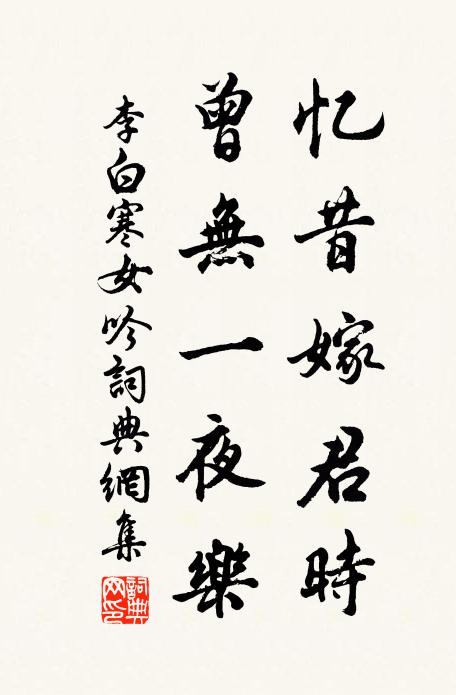 忆昔嫁君時
曾無一夜樂
李白寒女吟詞典網集
詞典網印